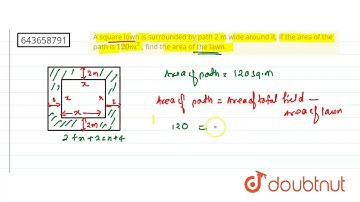 643658791
A square lown is surrounded by path 2 m wide around it. If the area of the
path is 120m², find the area of the lawn.
Area of path = 120 sq.m
Area of path = Area of total field -
Area of lawn
120 =
2m
x
2
x
x
2
x
2m
2+x+2=x+4
doubtnut